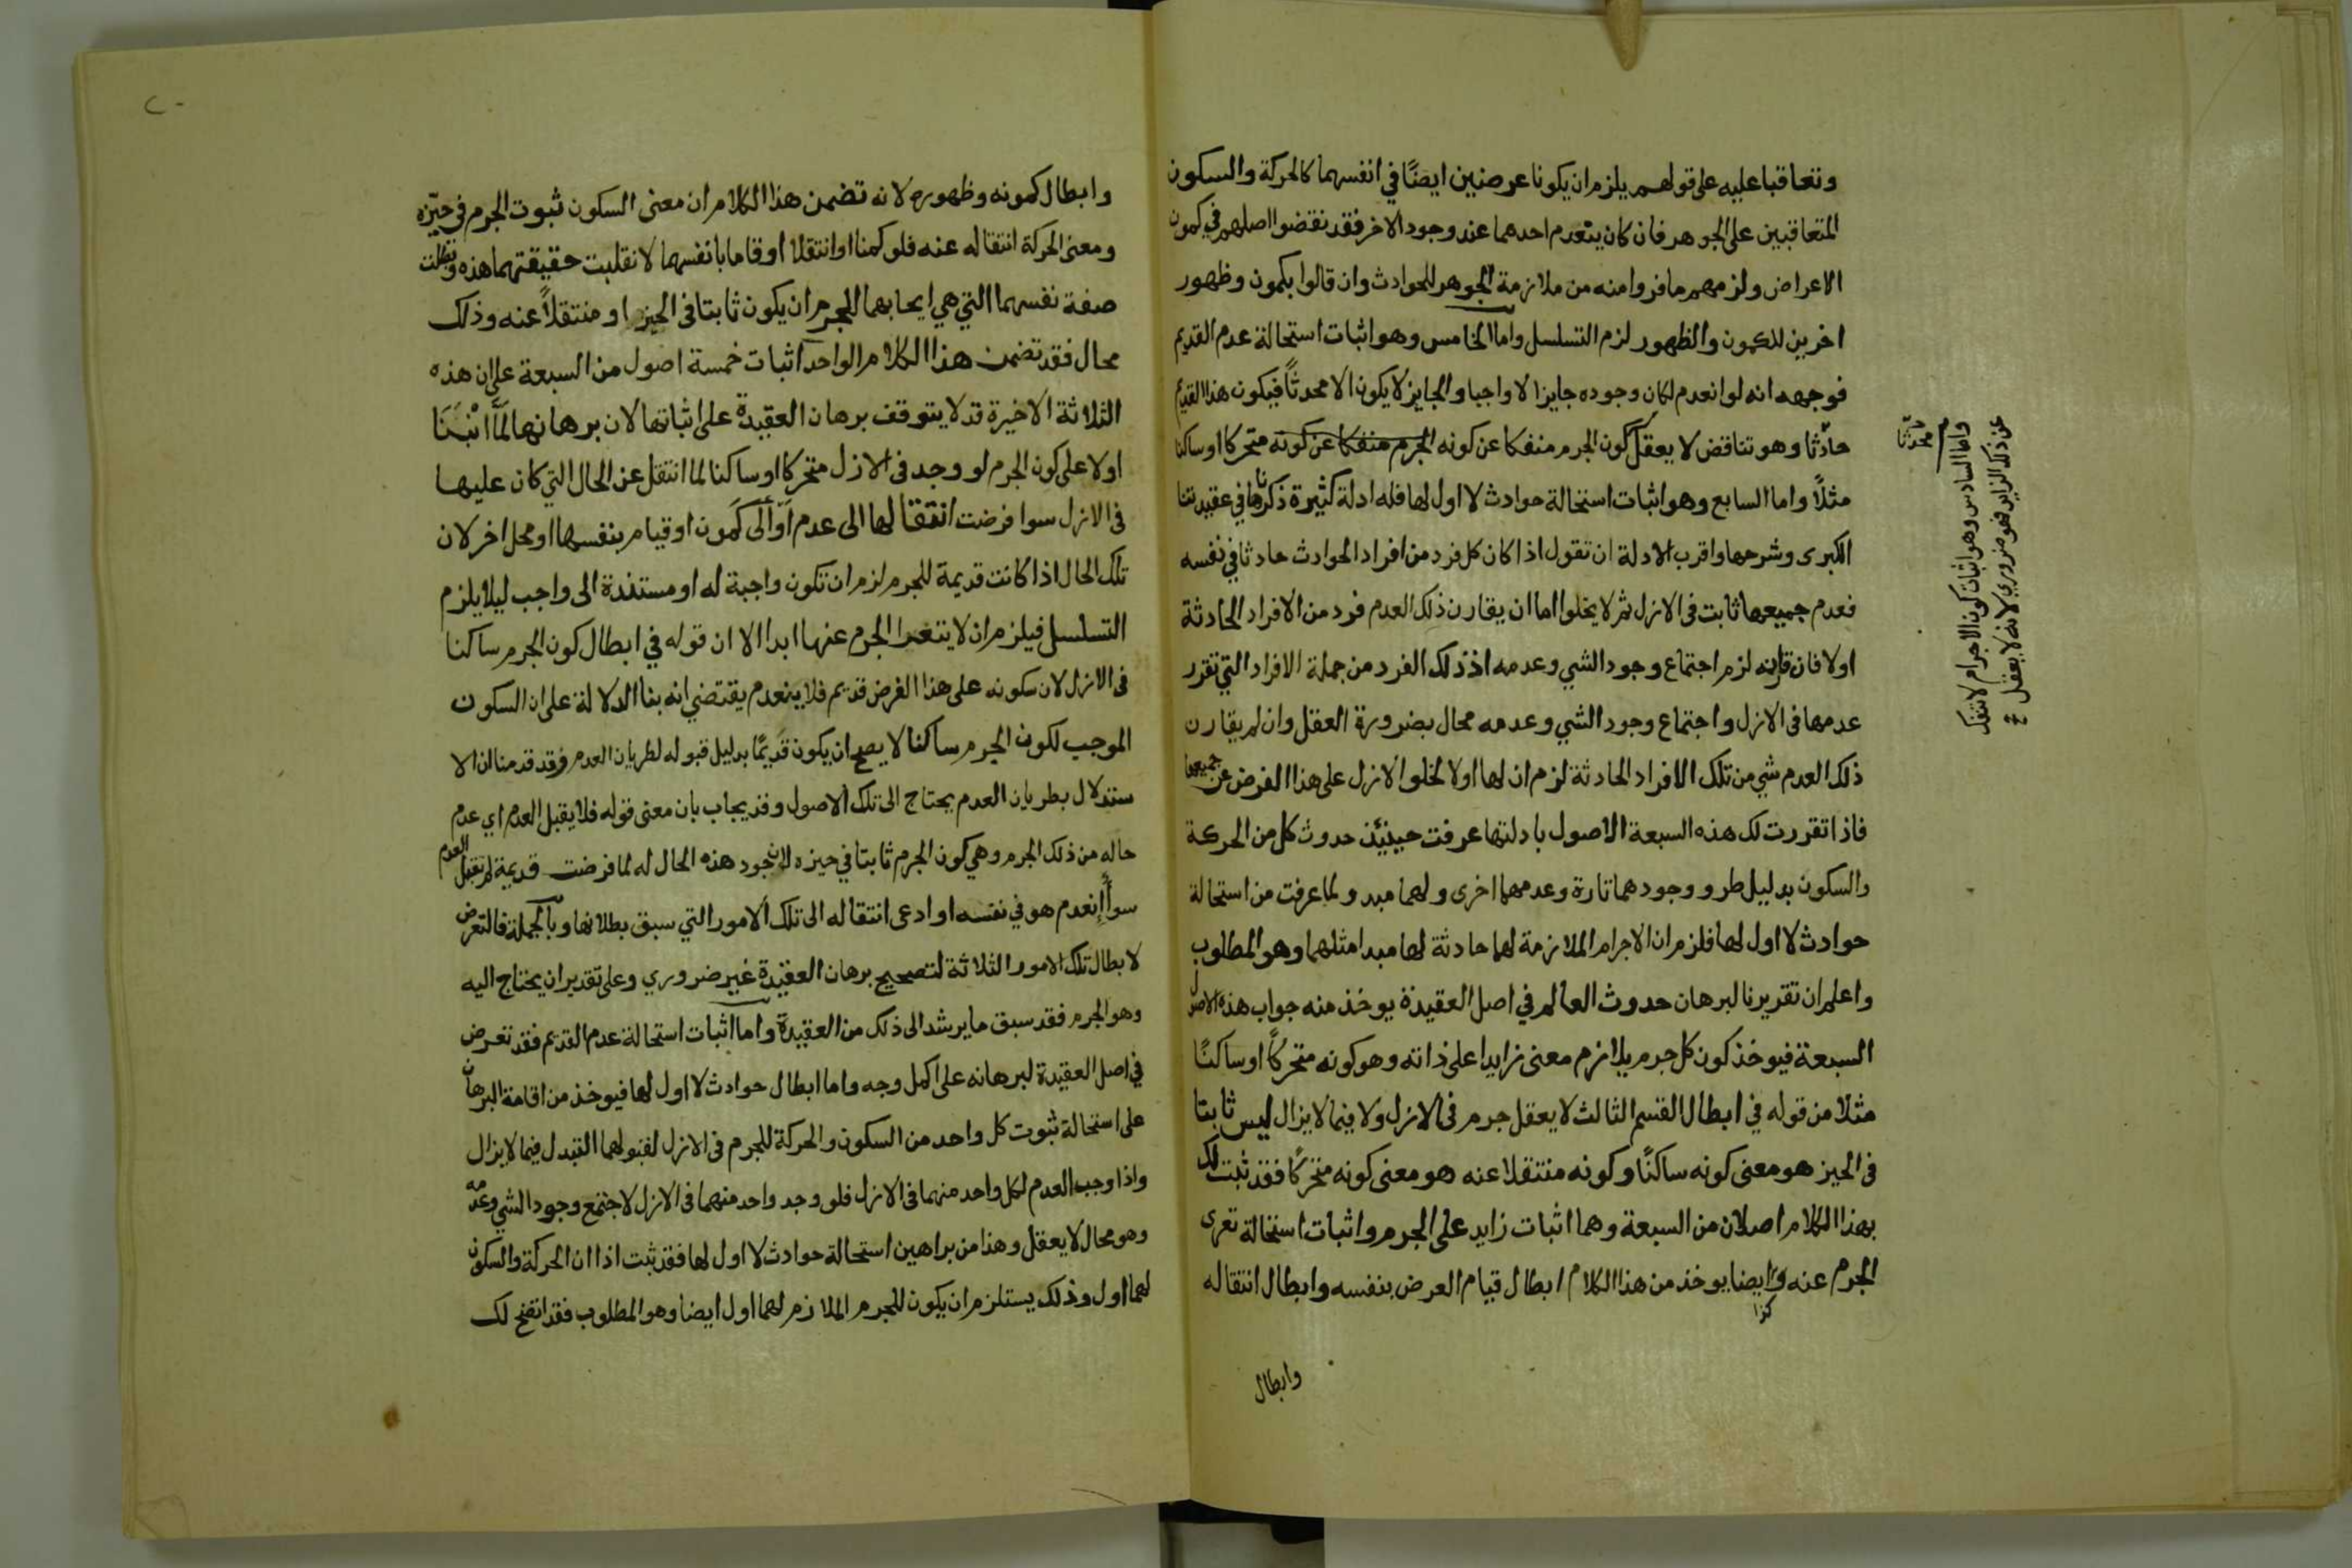 وتعاقبا عليه على قولهم يلزم ان يكونا عرضين ايضًا في انفسهما كالحركة والسكون
المتعاقبين على الجوهر فان كان ينعدم احدهما عند وجود الاخر فقد نقضوا اصلهم في كمون
الاعراض ولزمهم ما فروا منه من ملازمة الجوهر للحوادث وان قالوا بكمون وظهور
اخرين للكمون والظهور لزم التسلسل واما الخامس وهو اثبات استحالة عدم القديم
فوجهه انه لو انعدم لكان وجوده جايزا لا واجبا والجايز لا يكون الا محدثًا فيكون هذا القديم
حادثا وهو تناقض لا يعقل كون الجرم منفكا عن كونه الجرم منفكا عن كونه متحركا او ساكنا
مثلاً واما السابع وهو اثبات استحالة حوادث لا اول لها فله ادلة كثيرة ذكرناها في عقيدتنا
الكبرى وشرحها واقرب الادلة ان تقول اذا كان كل فرد من افراد الحوادث حادثا في نفسه
فعدم جميعها ثابت في الازل ثم لا يخلوا اما ان يقارن ذلك العدم فرد من الافراد الحادثة
اولا فان قارنه لزم اجتماع وجود الشي وعدمه اذ ذلك الفرد من جملة الافراد التي تقرر
عدمها في الازل واجتماع وجود الشي وعدمه محال بضرورة العقل وان لم يقارن
ذلك العدم شي من تلك الافراد الحادثة لزم ان لها اولا لخلو الازل على هذا الفرض عن جميعها
فاذا تقررت لك هذه السبعة الاصول بادلتها عرفت حينيئذ حدوث كل من الحركة
والسكون بدليل طرو وجودهما تارة وعدمهما اخرى ولهما مبد ولما عرفت من استحالة
حوادث لا اول لها فلزم ان الاجرام الملازمة لهما حادثة لها مبدا مثلهما وهو المطلوب
واعلم ان تقريرنا لبرهان حدوث العالم في اصل العقيدة يوخذ منه جواب هذه الاصول
السبعة فيوخذ كون كل جرم يلازم معنى زايدا على ذاته وهو كونه متحركًا او ساكنًا
مثلا من قوله في ابطال القسم الثالث لا يعقل جرم في الازل ولا فيما لا يزال ليس ثابتا
في الحيز هو معنى كونه ساكنًا وكونه منتقلا عنه هو معنى كونه متحركًا فقد ثبت لك
بهذا الكلام اصلان من السبعة وهما اثبات زايد على الجرم واثبات استحالة تعرى
الجرم عنه وايضا يوخذ من هذا الكلام ابطال قيام العرض بنفسه وابطال انتقاله
كذا
وابطال
محدثا
واما السادس وهو اثبات كون الاجرام لا تنفك
عن ذلك الزايد فهو ضروري لانه لا يعقل
وابطال كمونه وظهوره لانه تضمن هذا الكلام ان معنى السكون ثبوت الجرم في حيّزه
ومعنى الحركة انتقاله عنه فلو كمنا او انتقلا او قاما بانفسهما لانقلبت حقيقتهما هذه وبطلت
صفة نفسهما التي هي ايجابهما للجرم ان يكون ثابتا في الحيز او منتقلاً عنه وذلك
محال فقد تضمن هذا الكلام الواحد اثبات خمسة اصول من السبعة على ان هذه
الثلاثة الاخيرة قد لا يتوقف برهان العقيدة على اثباتها لان برهانها
اولا على كون الجرم لو وجد في الازل متحركا او ساكنا لما انتقل عن الحال التي كان عليها
في الازل سوا فرضت انتقالها الى عدم او الى كمون او قيام بنفسها او محل اخر لان
تلك الحال اذا كانت قديمة للجرم لزم ان تكون واجبة له او مستندة الى واجب ليلا يلزم
التسلسل فيلزم ان لا يتغير الجرم عنها ابدا الا ان قوله في ابطال كون الجرم ساكنا
في الازل لان سكونه على هذا الفرض قديم فلا ينعدم يقتضي انه بنا الدلالة على ان السكون
الموجب لكون الجرم ساكنا لا يصح ان يكون قديمًا بدليل قبوله لطريان العدم وقد قدمنا ان الا
ستدلال بطريان العدم يحتاج الى تلك الاصول وقد يجاب بان معنى قوله فلا يقبل العدم اي عدم
حاله من ذلك الجرم وهي كون الجرم ثابتا في حيزه لان وجود هذه الحال له لما فرضت قديمة لم تقبل العدم
سوأ إنعدم هو في نفسه او ادعى انتقاله الى تلك الامور التي سبق بطلانها وبالجملة فالتعرض
لابطال تلك الامور الثلاثة لتصحيح برهان العقيدة غير ضروري وعلى تقدير ان يحتاج اليه
وهو الجرم فقد سبق ما يرشد الى ذلك من العقيدة واما اثبات استحالة عدم القديم فقد تعرض
في اصل العقيدة لبرهانه على اكمل وجه واما ابطال حوادث لا اول لها فيوخذ من اقامة البرهان
على استحالة ثبوت كل واحد من السكون والحركة للجرم في الازل لقبولهما التبدل فيما لا يزال
واذا وجب العدم لكل واحد منهما في الازل فلو وجد واحد منهما في الازل لاجتمع وجود الشي وعدمه
وهو محال لا يعقل وهذا من براهين استحالة حوادث لا اول لها فقد ثبت اذا ان الحركة والسكون
لهما اول وذلك يستلزم ان يكون للجرم الملازم لهما اول ايضا وهو المطلوب فقد اتضح لك